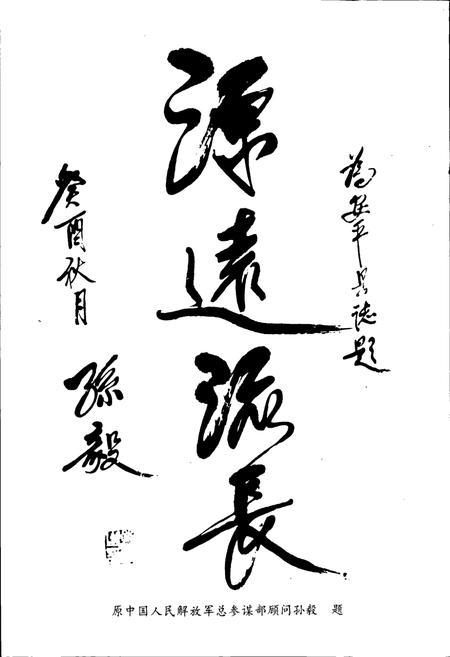 为安平县志题
源遠流長
癸酉秋月
孫毅
原中国人民解放军总参谋部顾问孙毅 题